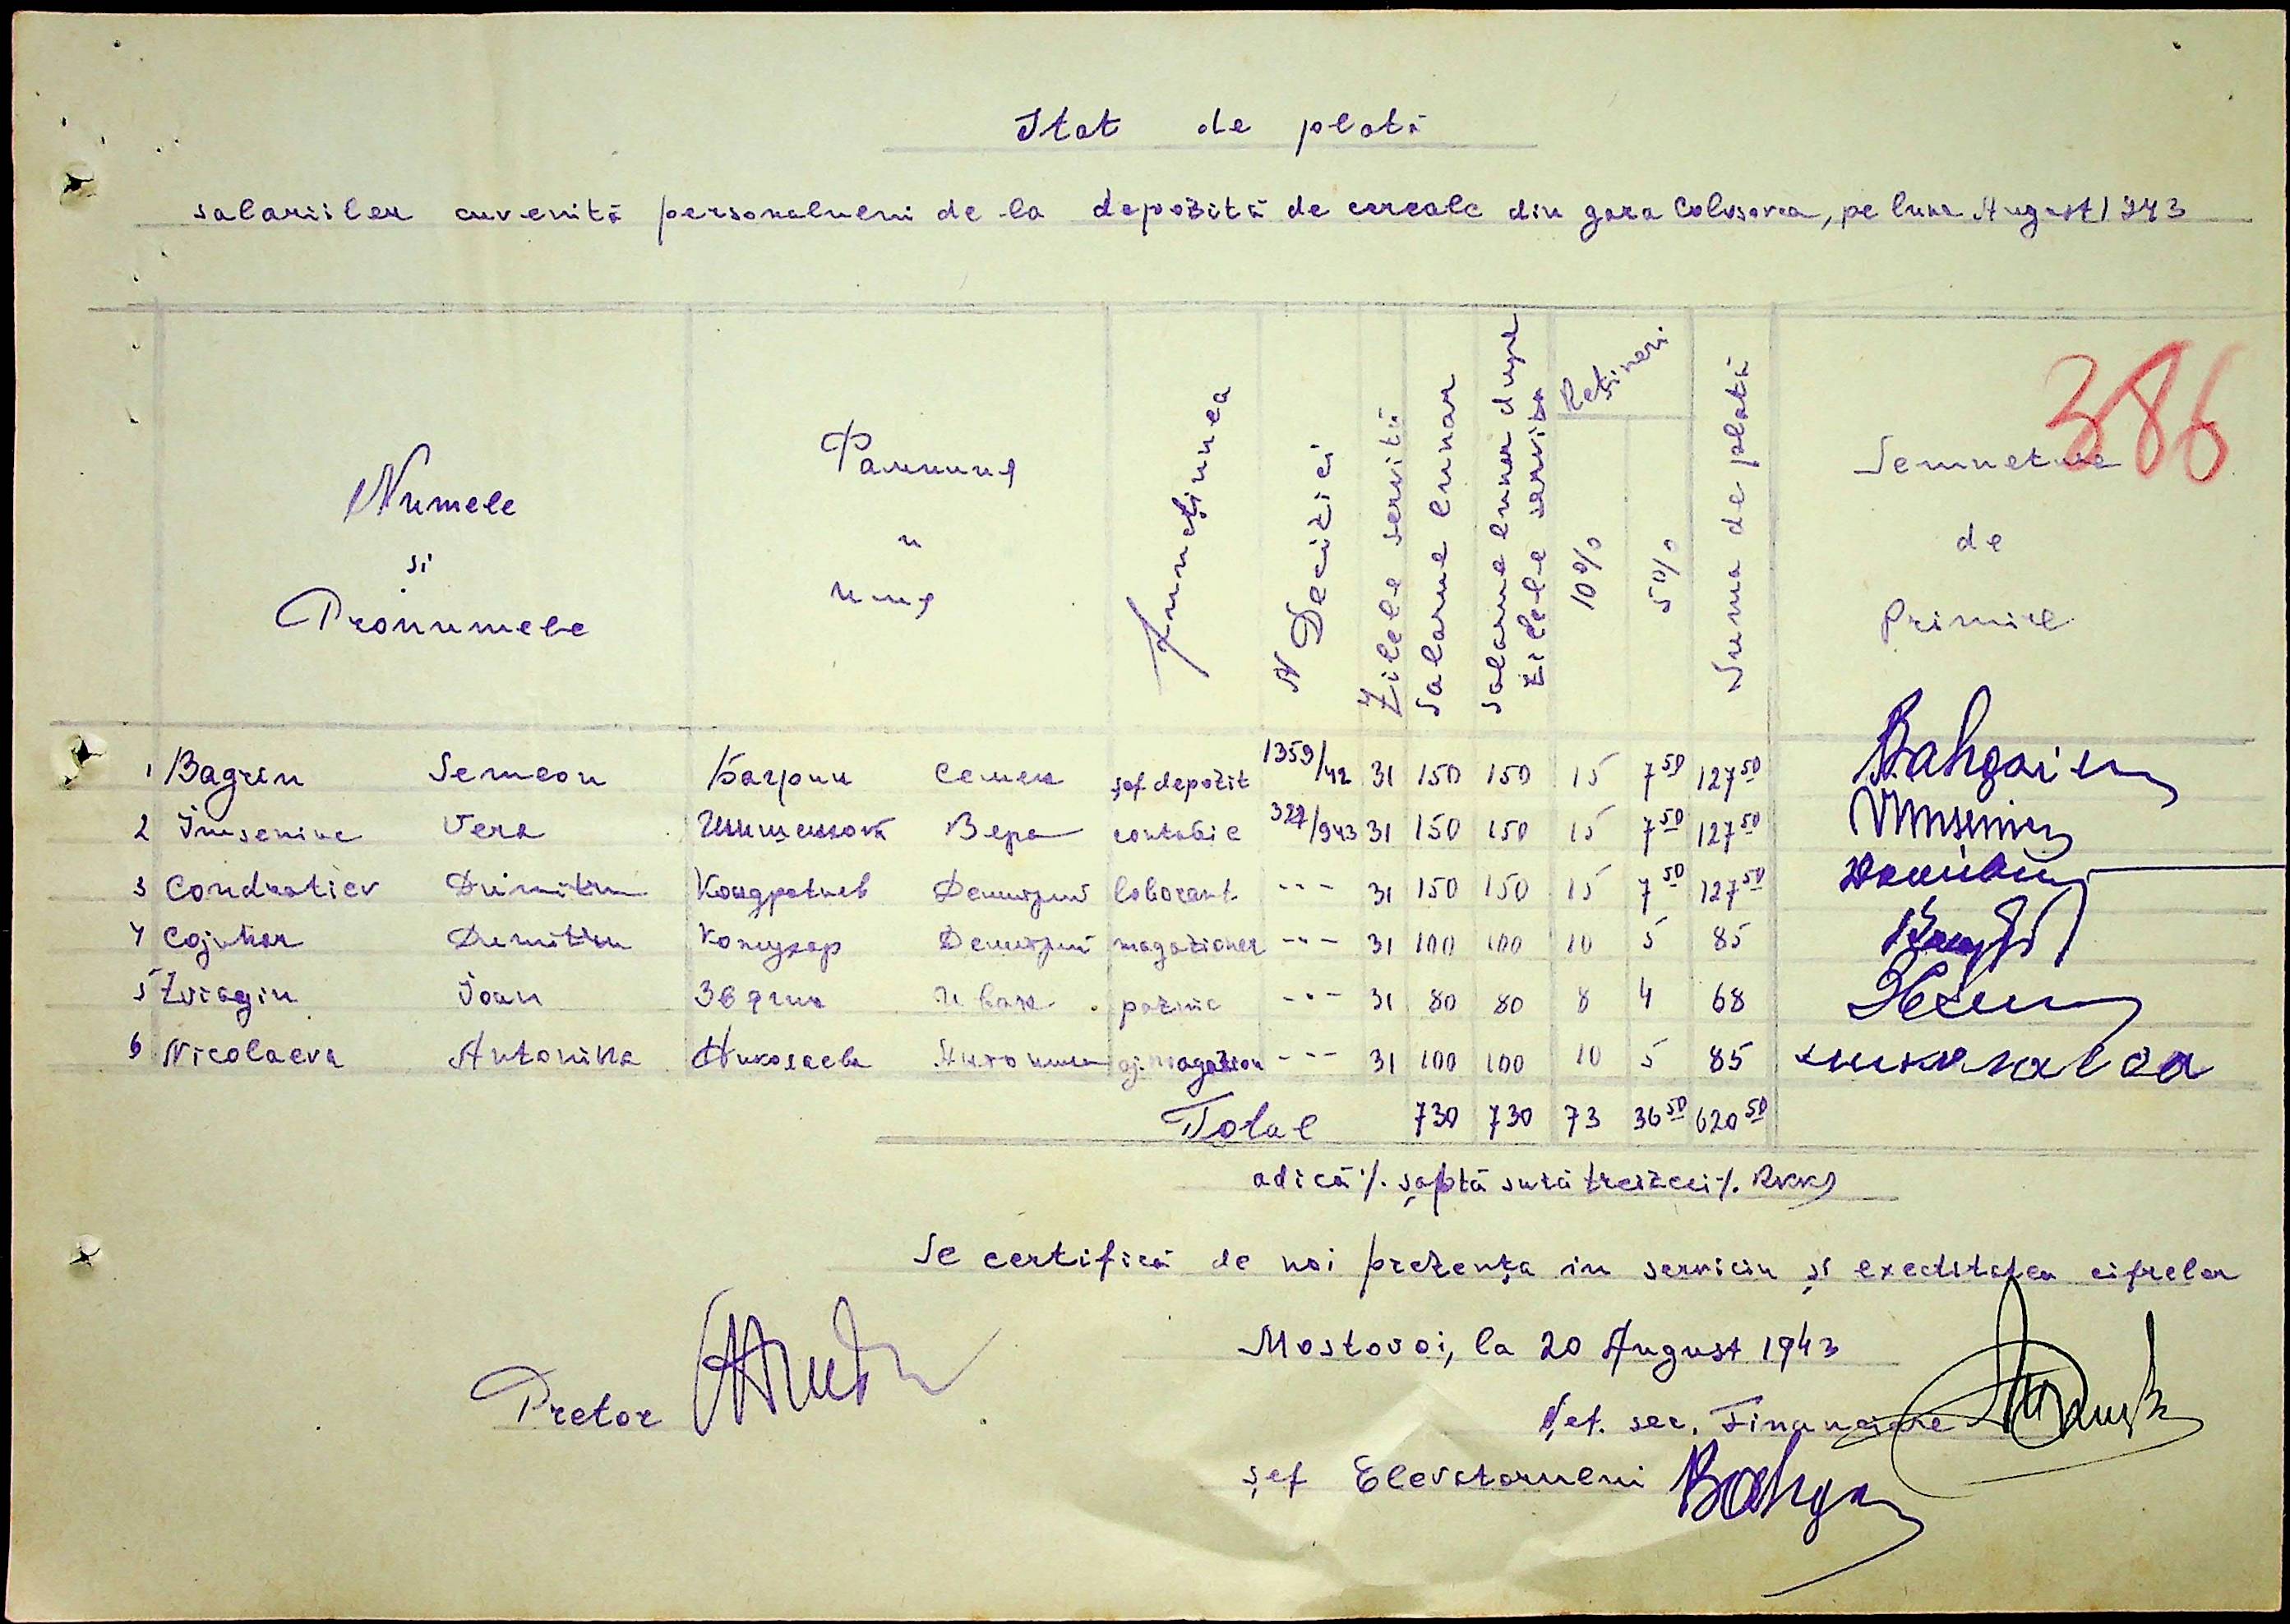 Stat de plată
salariilor cuvenită personalului de la depozită de cereale din gara Colosovca, pe luna August 1943
386
Numele si Pronumele
Фамилия и имя
Funcțiunea
N Deciziei
Zilele servită
Salarue lunar
Salarue lunar după zilele servite
Rețineri
10%
5%
Suma de plată
Semneture de Primire
1 Bagrin Semeon Багрин Семен șef depozit 1359/42 31 150 150 15 7 50 127 50
2 Vera Вера contabil 327/943 31 150 150 15 7 50 127 50
3 Condratiev Dimitru Кондратьев Демитрий laborant --- 31 150 150 15 7 50 127 50
4 Cojuhar Dumitru Кожухар Демитрий magazioner --- 31 100 100 10 5 85
5 Zviagin Ioan Звягин Иван paznic --- 31 80 80 8 4 68
6 Nicolaeva Antonina Николаева Антонина aj. magazion --- 31 100 100 10 5 85
Total 730 730 73 36 50 620 50
adică ·/. șaptă sută treizeci ·/. RKKS
Se certifică de noi prezența in serviciu și exactitatea cifrelor
Mostovoi, la 20 August 1943
Pretor
Șef. sec. Financiare
șef Elevatorului